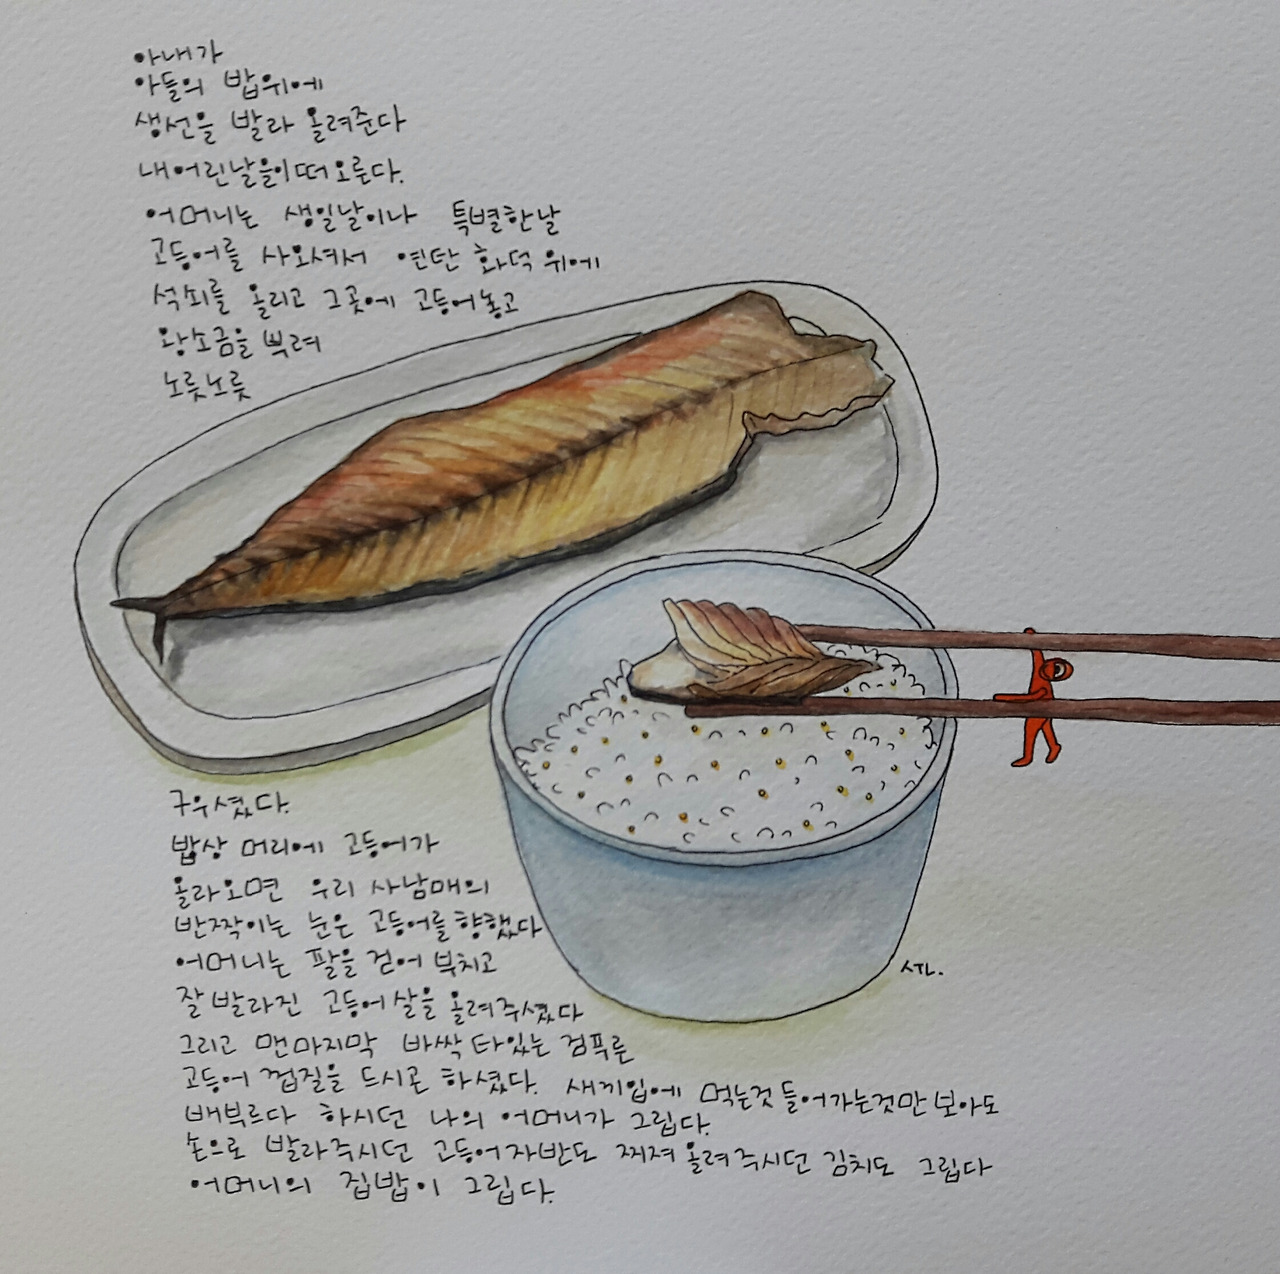 아내가
아들의 밥위에
생선을 발라 올려준다
내어린날을이떠오른다.
어머니는 생일날이나 특별한날
고등어를 사오셔서 연탄 화덕 위에
석쇠를 올리고 그곳에 고등어놓고
왕소금을 뿌려
노릇노릇
구우셨다.
밥상 머리에 고등어가
올라오면 우리 사남매의
반짝이는 눈은 고등어를 향했다
어머니는 팔을 걷어 부치고
잘 발라진 고등어 살을 올려주셨다
그리고 맨마지막 바싹 타있는 검푸른
고등어 껍질을 드시곤 하셨다. 새끼입에 먹는것 들어가는것만 보아도
배부르다 하시던 나의 어머니가 그립다.
손으로 발라주시던 고등어자반도 찌져 올려주시던 김치도 그립다
어머니의 집밥이 그립다.
STL.